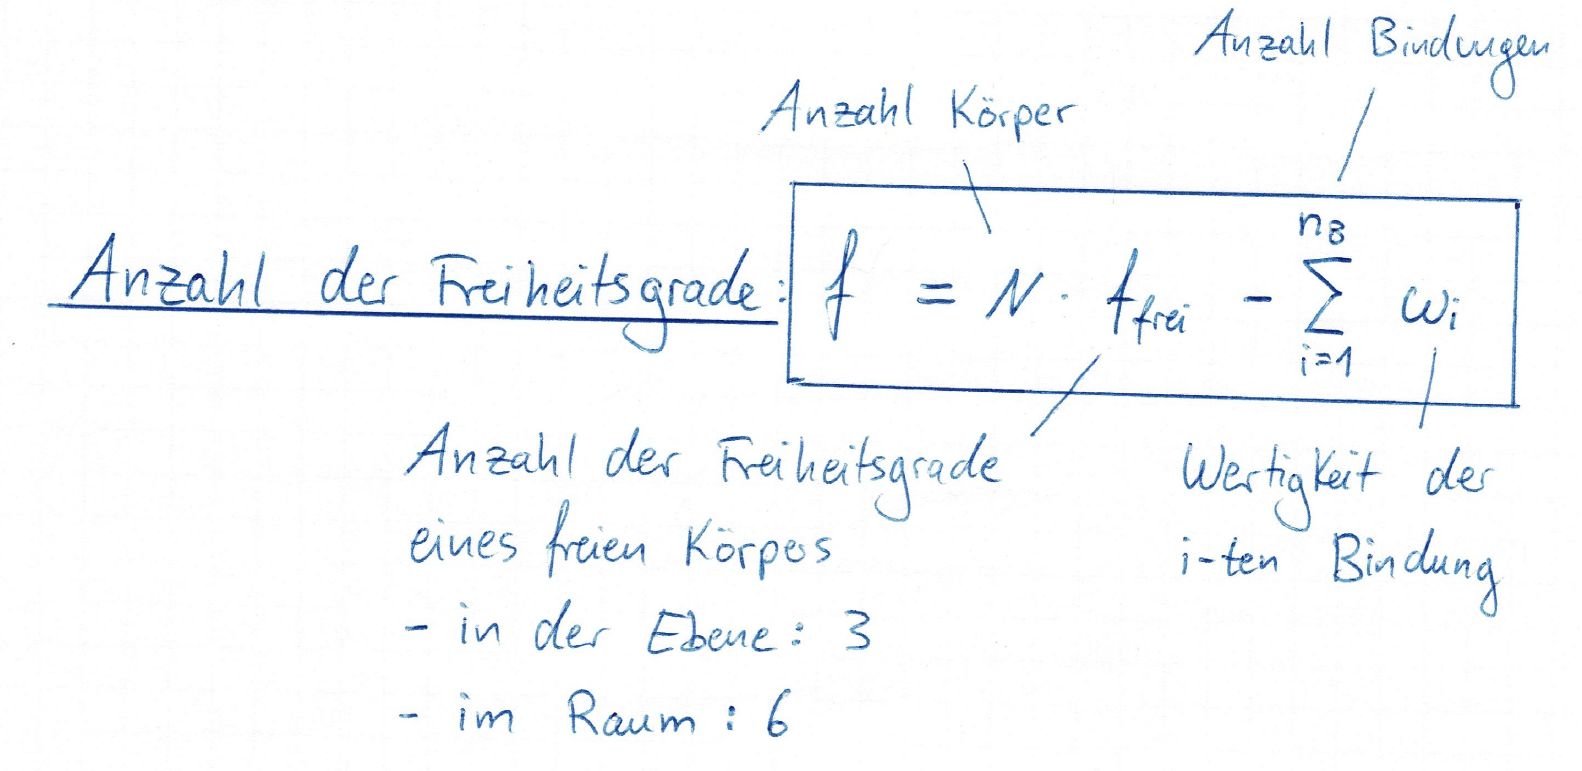 Anzahl Bindungen
Anzahl Körper
Anzahl der Freiheitsgrade: f = N · f_frei - ∑_{i=1}^{n_B} w_i
Anzahl der Freiheitsgrade
eines freien Körpers
- in der Ebene: 3
- im Raum: 6
Wertigkeit der
i-ten Bindung